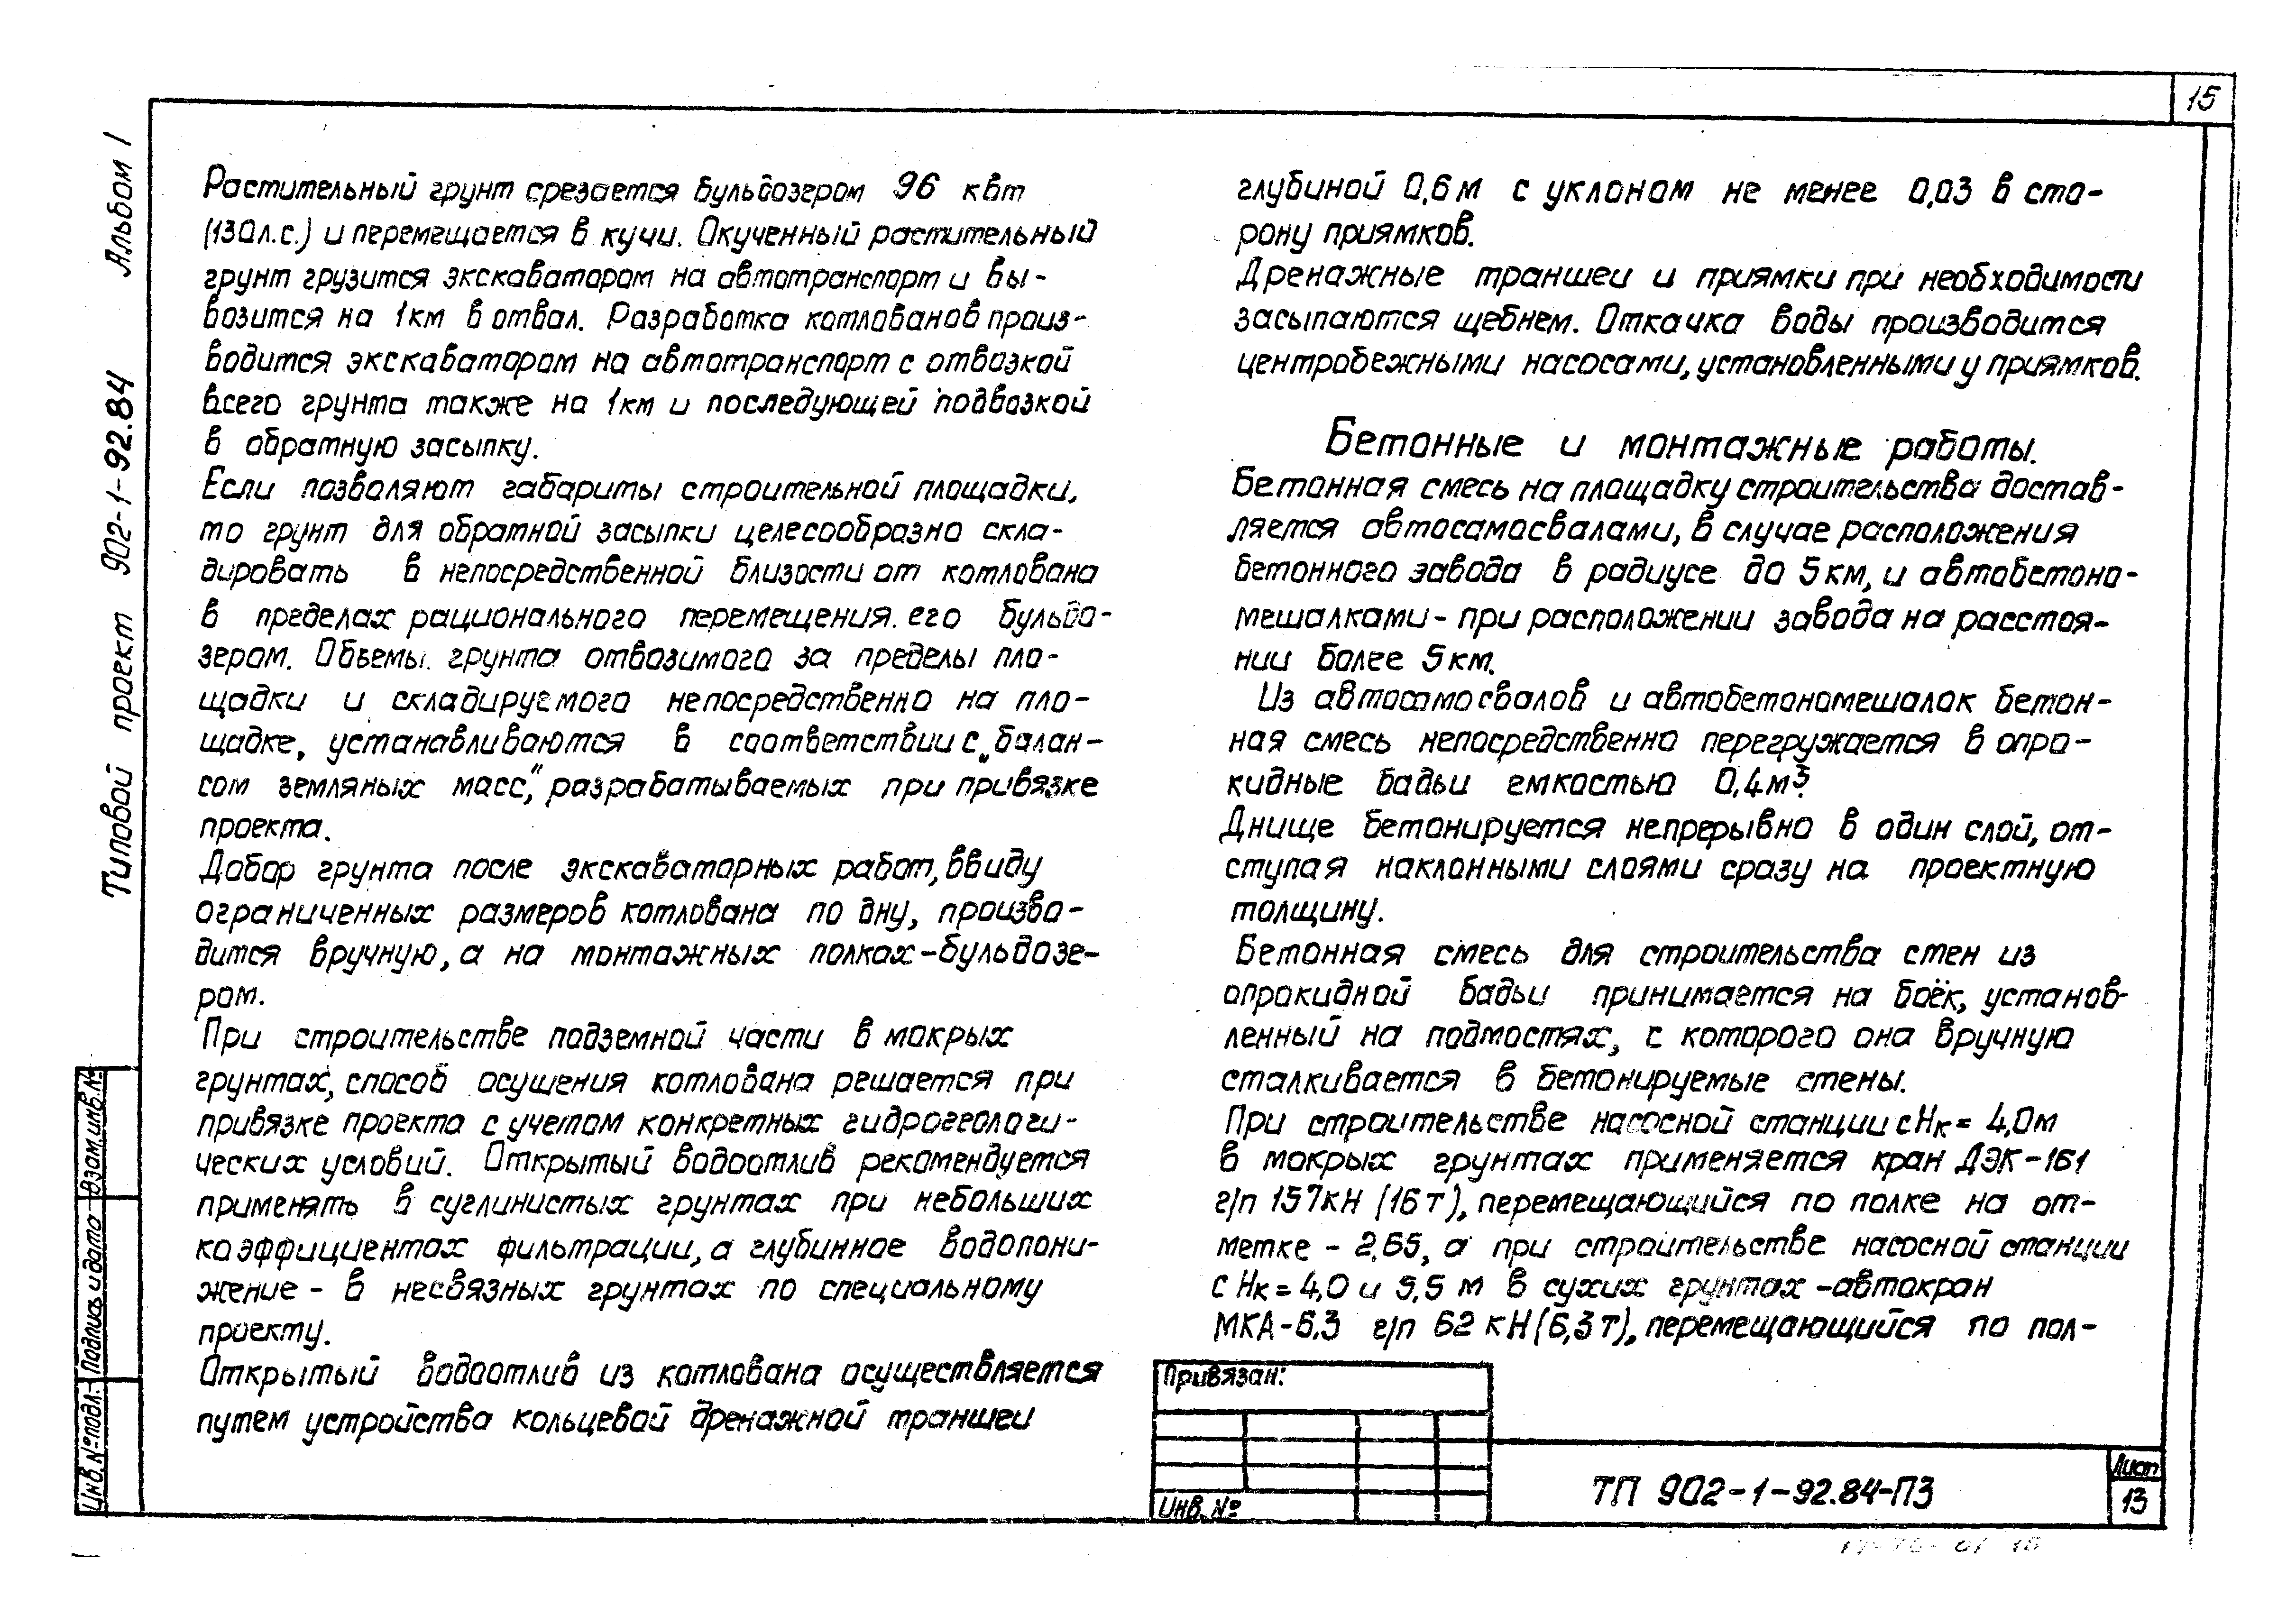 15
Альбом 1
Типовой проект 902-1-92.84
Растительный грунт срезается бульдозером 96 квт
(130л.с.) и перемещается в кучи. Окученный растительный
грунт грузится экскаватором на автотранспорт и вы-
возится на 1км в отвал. Разработка котлованов произ-
водится экскаватором на автотранспорт с отвозкой
всего грунта также на 1км и последующей подвозкой
в обратную засыпку.
Если позволяют габариты строительной площадки,
то грунт для обратной засыпки целесообразно скла-
дировать в непосредственной близости от котлована
в пределах рационального перемещения его бульдо-
зером. Объемы грунта отвозимого за пределы пло-
щадки и складируемого непосредственно на пло-
щадке, устанавливаются в соответствии с „балан-
сом земляных масс“, разрабатываемых при привязке
проекта.
Добор грунта после экскаваторных работ, ввиду
ограниченных размеров котлована по дну, произво-
дится вручную, а на монтажных полках-бульдозе-
ром.
При строительстве подземной части в мокрых
грунтах, способ осушения котлована решается при
привязке проекта с учетом конкретных гидрогеологи-
ческих условий. Открытый водоотлив рекомендуется
применять в суглинистых грунтах при небольших
коэффициентах фильтрации, а глубинное водопони-
жение - в несвязных грунтах по специальному
проекту.
Открытый водоотлив из котлована осуществляется
путем устройства кольцевой дренажной траншеи
глубиной 0,6м с уклоном не менее 0,03 в сто-
рону приямков.
Дренажные траншеи и приямки при необходимости
засыпаются щебнем. Откачка воды производится
центробежными насосами, установленными у приямков.
Бетонные и монтажные работы.
Бетонная смесь на площадку строительства достав-
ляется автосамосвалами, в случае расположения
бетонного завода в радиусе до 5км, и автобетоно-
мешалками - при расположении завода на расстоя-
нии более 5км.
Из автосамосвалов и автобетономешалок бетон-
ная смесь непосредственно перегружается в опро-
кидные бадьи емкостью 0,4м³.
Днище бетонируется непрерывно в один слой, от-
ступая наклонными слоями сразу на проектную
толщину.
Бетонная смесь для строительства стен из
опрокидной бадьи принимается на боёк, установ-
ленный на подмостях, с которого она вручную
сталкивается в бетонируемые стены.
При строительстве насосной станции с Нк= 4,0м
в мокрых грунтах применяется кран ДЭК-161
г/п 157кН (16т), перемещающийся по полке на от-
метке - 2,65, а при строительстве насосной станции
с Нк=4,0 и 5,5 м в сухих грунтах -автокран
МКА-6,3 г/п 62 кН(6,3т), перемещающийся по пол-
Привязан:
Инв. №
ТП 902-1-92.84-ПЗ
Лист
13
Взам.инв.№
Подпись и дата
Инв.№подл.